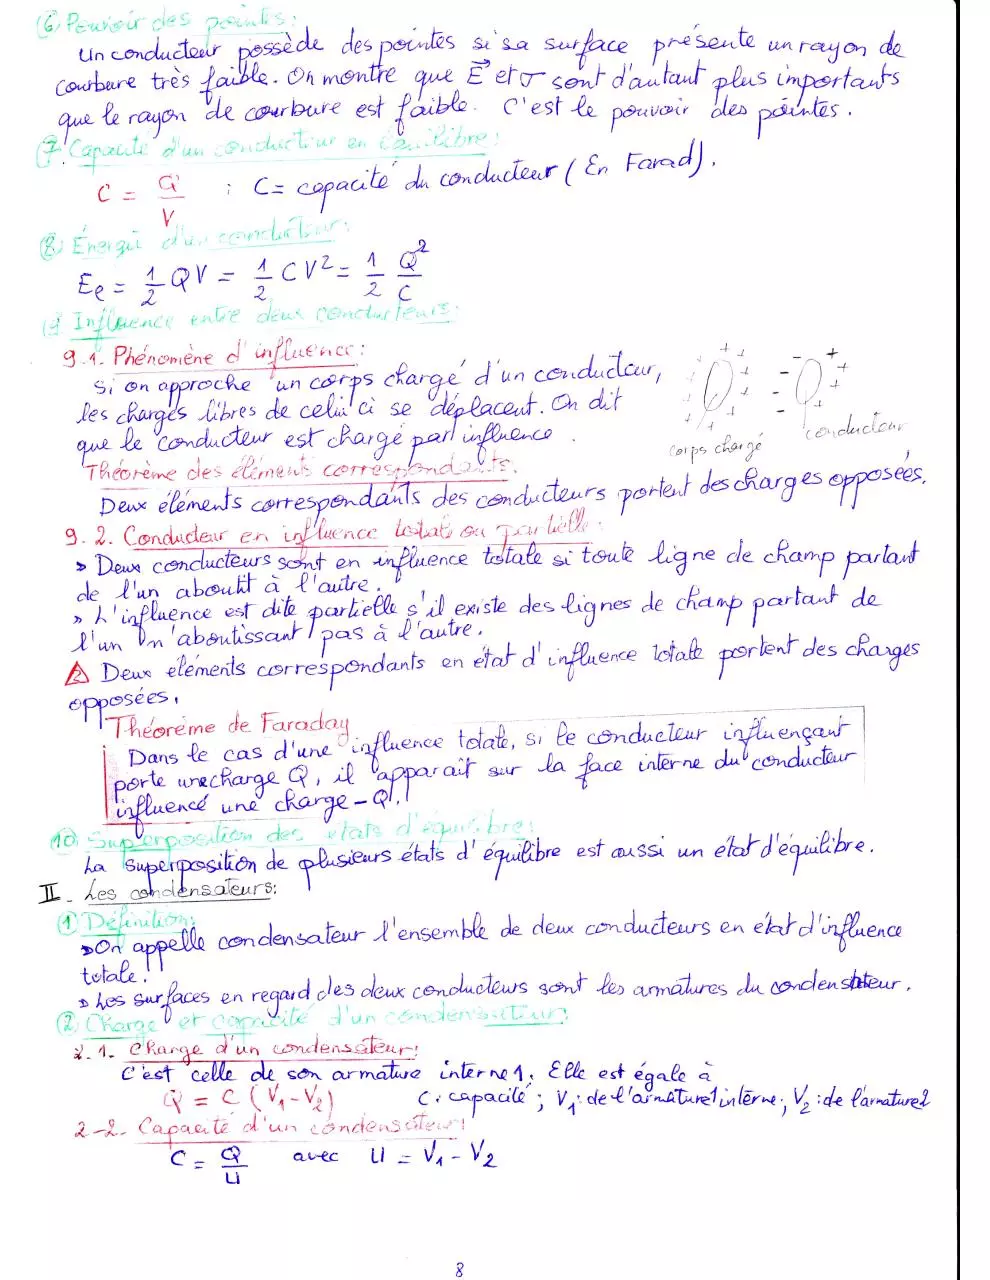 (6) Pouvoir des pointes:
Un conducteur possède des pointes si sa surface présente un rayon de
courbure très faible. On montre que E⃗ et σ sont d'autant plus importants
que le rayon de courbure est faible. C'est le pouvoir des pointes.
(7) Capacité d'un conducteur en équilibre:
C = Q/V : C = capacité du conducteur (En Farad).
(8) Énergie d'un conducteur:
Ee = 1/2 QV = 1/2 CV² = 1/2 Q²/C
(9) Influence entre deux conducteurs:
9.1. Phénomène d'influence:
Si on approche un corps chargé d'un conducteur,
les charges libres de celui ci se déplacent. On dit
que le conducteur est chargé par influence.
corps chargé
conducteur
Théorème des éléments correspondants.
Deux éléments correspondants des conducteurs portent des charges opposées.
9.2. Conducteur en influence totale ou partielle:
> Deux conducteurs sont en influence totale si toute ligne de champ partant
de l'un aboutit à l'autre.
> L'influence est dite partielle s'il existe des lignes de champ partant de
l'un n'aboutissant pas à l'autre.
Deux éléments correspondants en état d'influence totale portent des charges
opposées.
Théorème de Faraday
Dans le cas d'une influence totale, si le conducteur influençant
porte une charge Q, il apparaît sur la face interne du conducteur
influencé une charge -Q.
(10) Superposition des états d'équilibre:
La superposition de plusieurs états d'équilibre est aussi un état d'équilibre.
II - Les condensateurs:
(1) Définition:
> On appelle condensateur l'ensemble de deux conducteurs en état d'influence
totale.
> Les surfaces en regard des deux conducteurs sont les armatures du condensateur.
(2) Charge et capacité d'un condensateur:
2.1. Charge d'un condensateur:
C'est celle de son armature interne 1. Elle est égale à
Q = C (V1-V2) C: capacité; V1: de l'armature1 interne; V2: de l'armature2
2-2. Capacité d'un condensateur:
C = Q/U avec U = V1 - V2
8